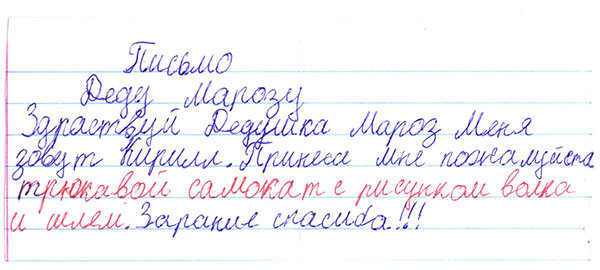 Письмо
Деду Марозу
Здраствуй Дедушка Мароз Меня
зовут Кирилл. Принеси мне пожамуйста
трюкавой самокат с рисунком волка
и шлем. Зарание спасиба!!!